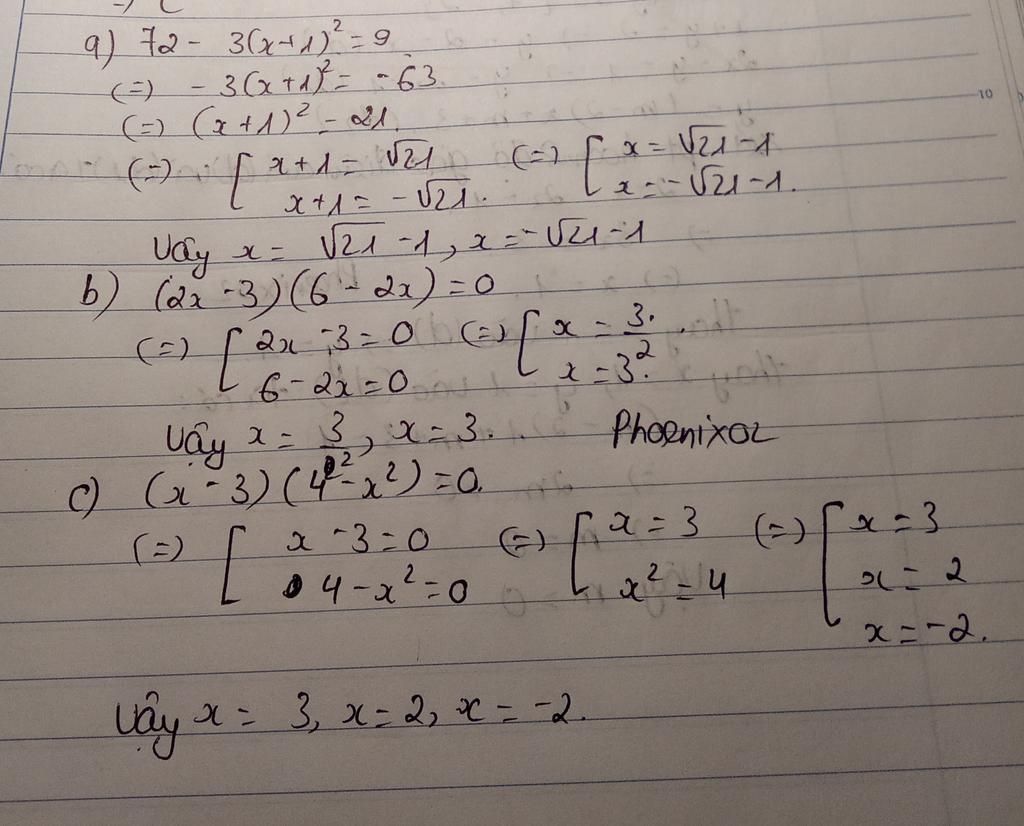 a) 72 - 3(x+1)² = 9
(=) - 3(x+1)² = -63.
(=) (x+1)² = 21.
(=) [ x+1 = √21 (=) [ x = √21 - 1
x+1 = -√21. x = -√21 - 1.
Vậy x = √21 - 1, x = -√21 - 1
b) (2x - 3)(6 - 2x) = 0
(=) [ 2x - 3 = 0 (=) [ x = 3/2.
6 - 2x = 0 x = 3.
Vậy x = 3/2, x = 3. Phoenixoz
c) (x - 3)(4 - x²) = 0.
(=) [ x - 3 = 0 (=) [ x = 3 (=) [ x = 3
4 - x² = 0 x² = 4 x = 2
x = -2.
Vậy x = 3, x = 2, x = -2.
10